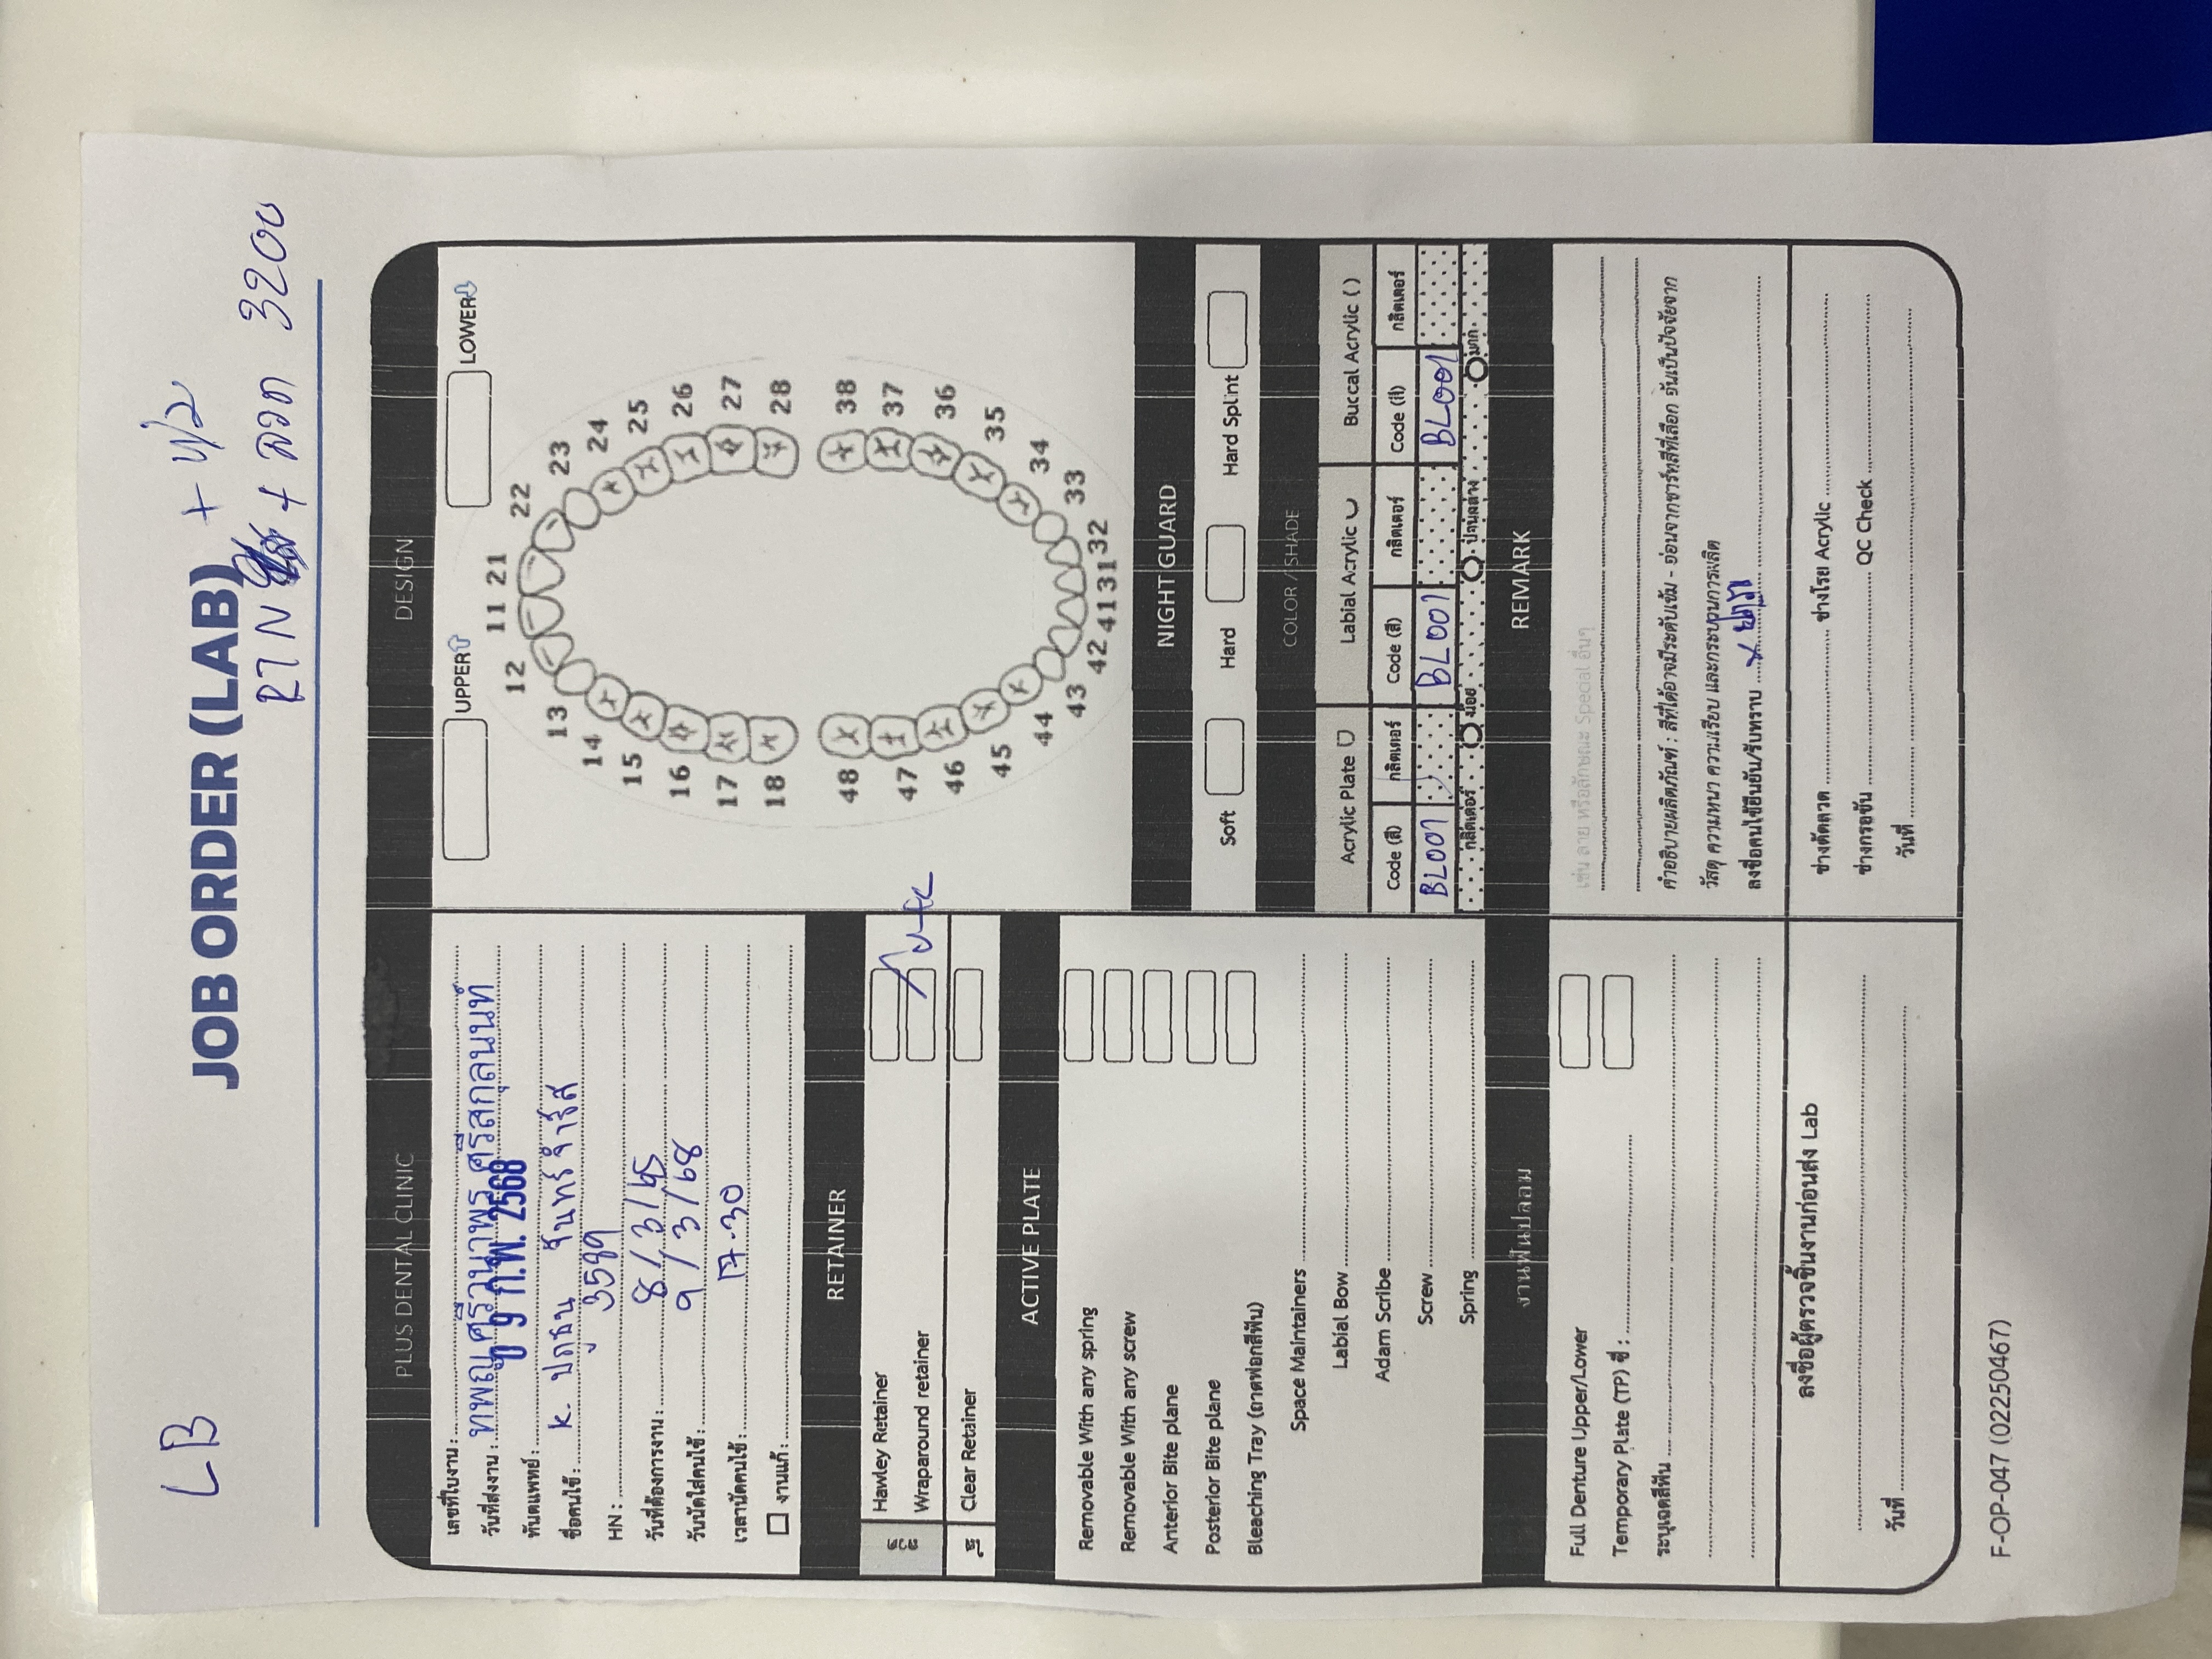 LB
JOB ORDER (LAB) + บ/ล
RTN ใส + ลวด 3200
PLUS DENTAL CLINIC
เลขที่ใบงาน :
วันที่ส่งงาน : ทพญ.ศรีวนาพร ศรีสกุลนนท์
ทันตแพทย์ : ก.พ. 2568
ชื่อคนไข้ : K.
HN : 3589
วันที่ต้องการงาน : 8/3/
วันนัดใส่คนไข้ : 9/3/68
เวลานัดคนไข้ : 17.30
งานแก้ :
RETAINER
ลวด
Hawley Retainer
Wraparound retainer
ใส
Clear Retainer
ACTIVE PLATE
Removable With any spring
Removable With any screw
Anterior Bite plane
Posterior Bite plane
Bleaching Tray (ถาดฟอกสีฟัน)
Space Maintainers
Labial Bow
Adam Scribe
Screw
Spring
งานฟันปลอม
Full Denture Upper/Lower
Temporary Plate (TP) ซี่ :
ระบุเฉดสีฟัน
ลงชื่อผู้ตรวจชิ้นงานก่อนส่ง Lab
วันที่
DESIGN
UPPER LOWER
11 21
12 22
13 23
14 24
15 25
16 26
17 27
18 28
48 38
47 37
46 36
45 35
44 34
43 33
42 41 31 32
NIGHT GUARD
Soft Hard Hard Splint
COLOR / SHADE
Acrylic Plate Labial Acrylic Buccal Acrylic ( )
Code (สี) กลิตเตอร์ Code (สี) กลิตเตอร์ Code (สี) กลิตเตอร์
BL001 BL001 BL001
กลิตเตอร์ น้อย ปานกลาง มาก
REMARK
เช่น ลาย หรือลักษณะ Special อื่นๆ
คำอธิบายผลิตภัณฑ์ : สีที่ได้อาจมีระดับเข้ม - อ่อนจากชาร์ทสีที่เลือก อันเป็นปัจจัยจาก
วัสดุ ความหนา ความเรียบ และกระบวนการผลิต
ลงชื่อคนไข้ยืนยัน/รับทราบ x
ช่างดัดลวด ช่างโรย Acrylic
ช่างกรอขัน QC Check
วันที่
F-OP-047 (02250467)